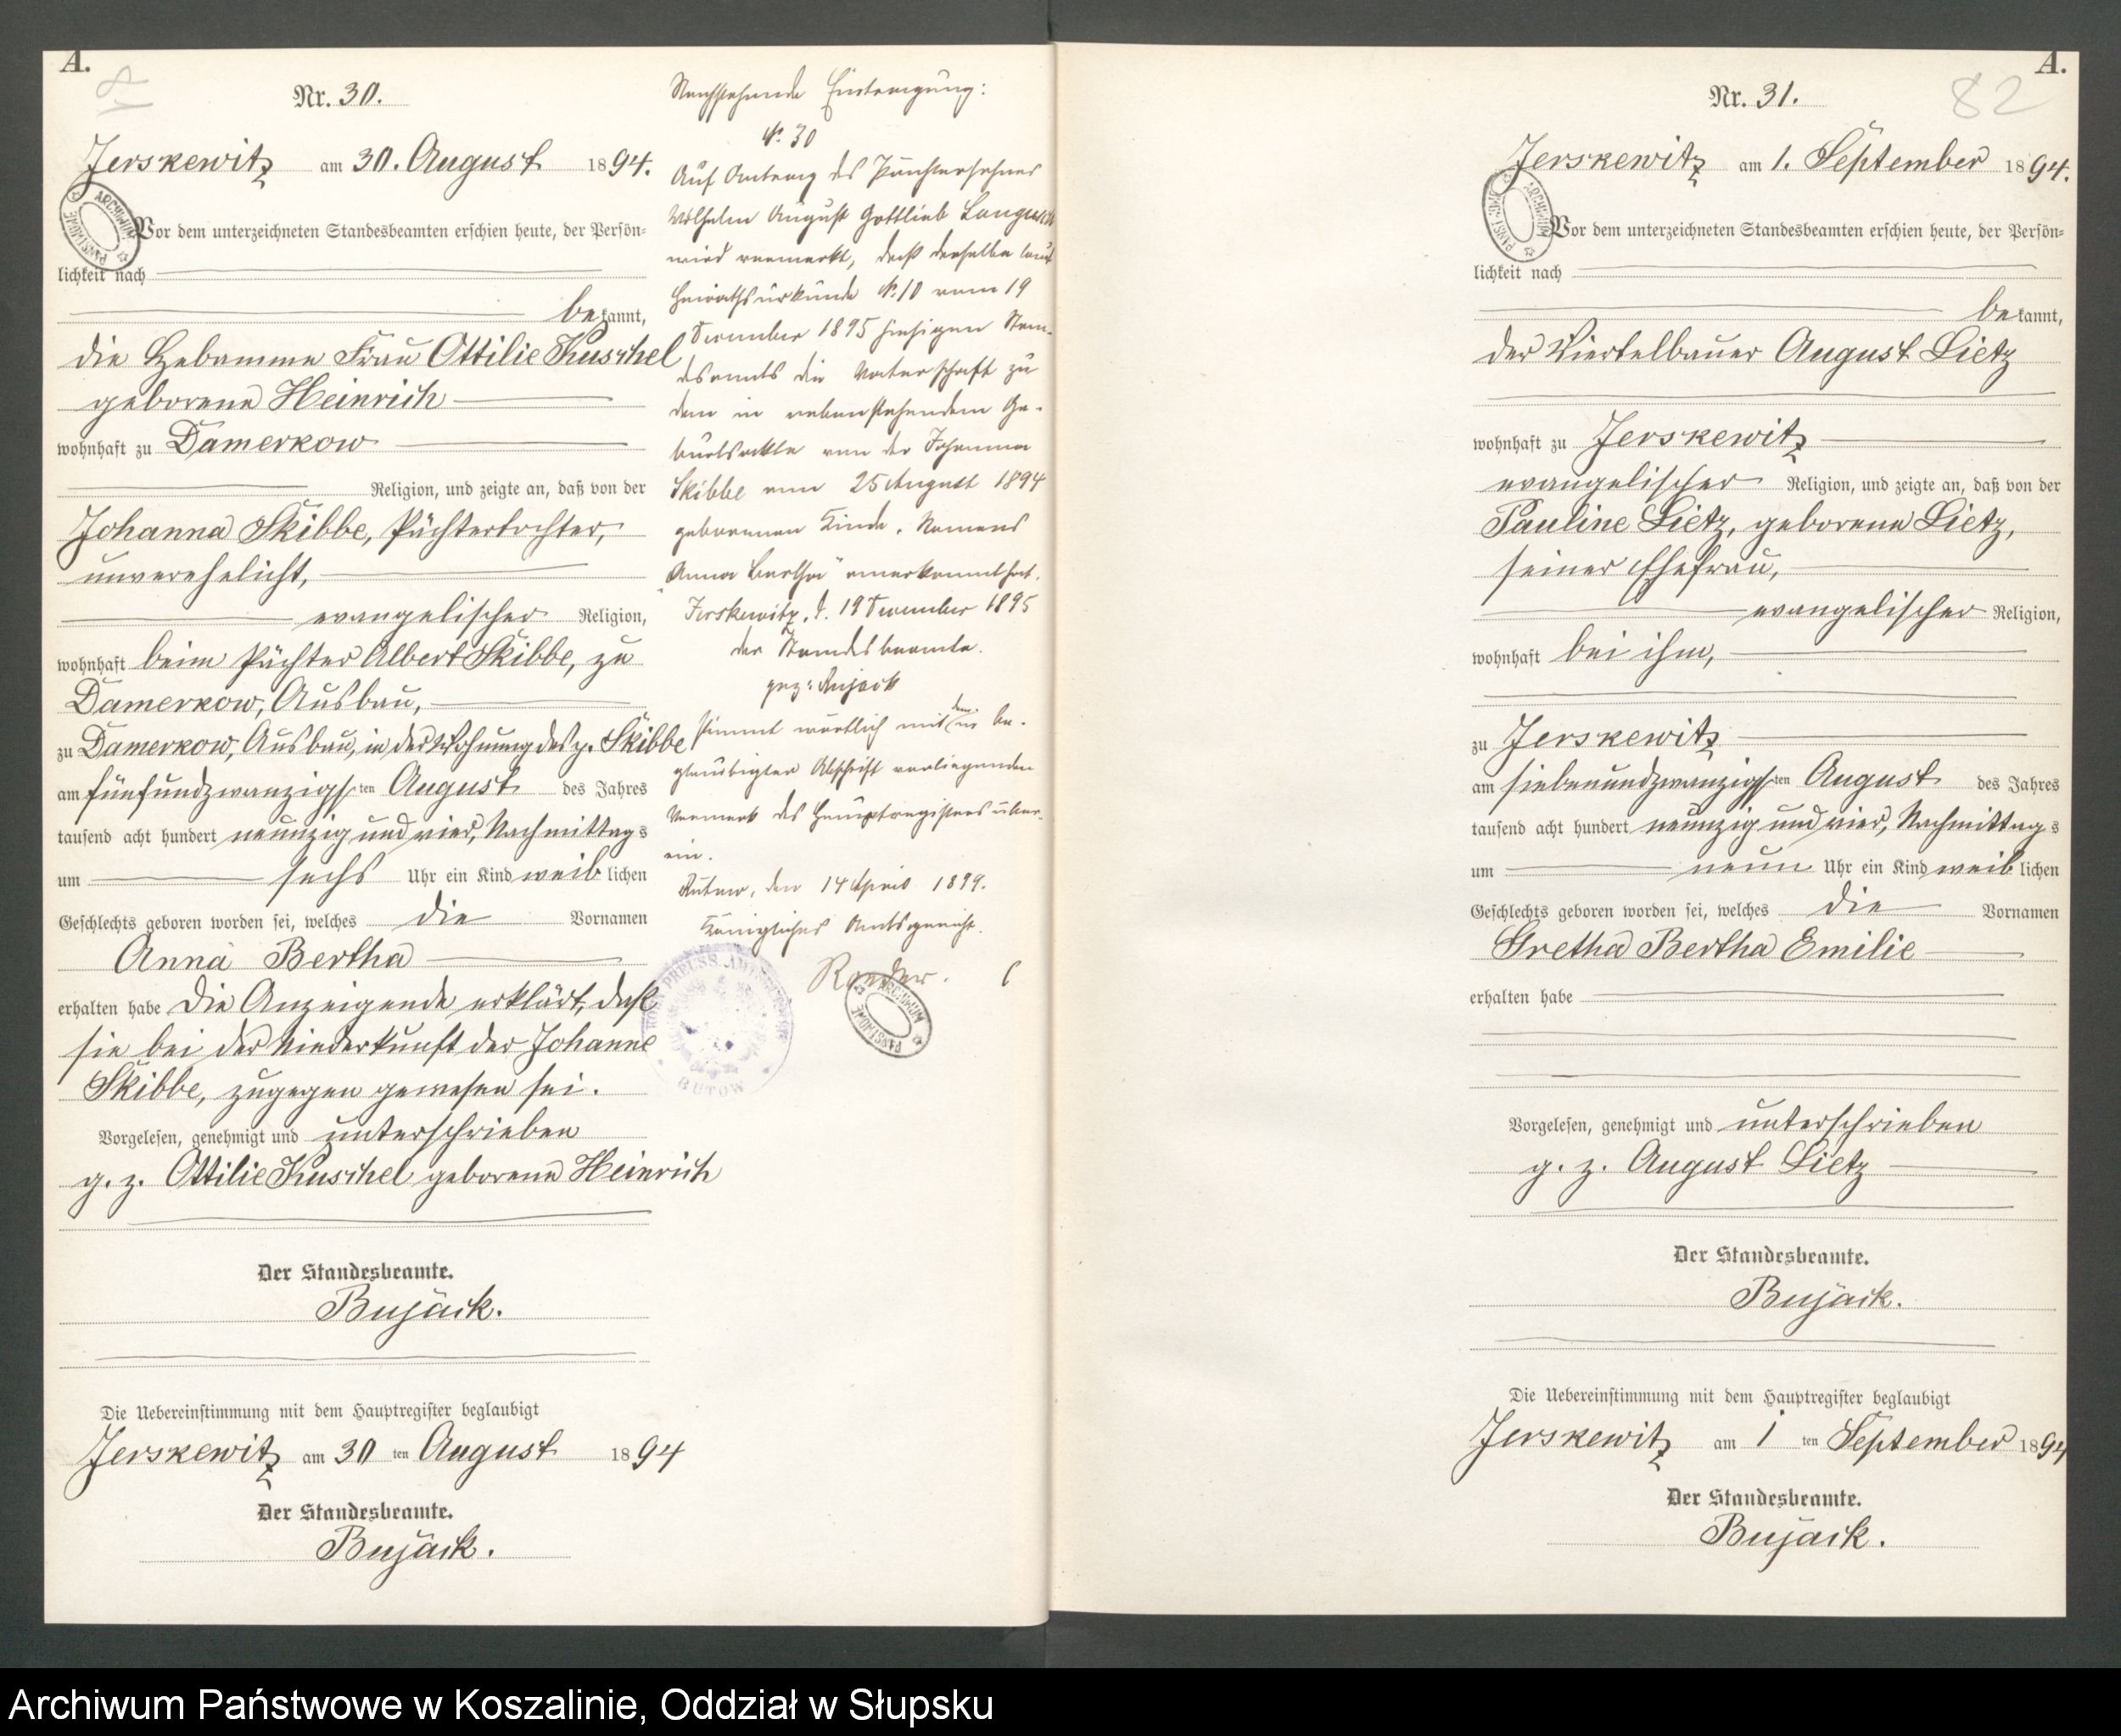 A.
Nr. 30.
Jerskewitz am 30. August 1894.
Vor dem unterzeichneten Standesbeamten erschien heute, der Persön-
lichkeit nach
bekannt,
die Hebamme Frau Ottilie Kuschel
geborene Heinrich
wohnhaft zu Damerkow
Religion, und zeigte an, daß von der
Johanna Skibbe, Pächtertochter,
unverehelicht,
evangelischer Religion,
wohnhaft beim Pächter Albert Skibbe, zu
Damerkow, Ausbau,
zu Damerkow, Ausbau, in der Wohnung des p. Skibbe
am fünfundzwanzigsten August des Jahres
tausend acht hundert neunzig und vier, Nachmittags
um sechs Uhr ein Kind weiblichen
Geschlechts geboren worden sei, welches die Vornamen
Anna Bertha
erhalten habe Die Anzeigende erklärt, daß
sie bei der Niederkunft der Johanne
Skibbe, zugegen gewesen sei.
Vorgelesen, genehmigt und unterschrieben
g. z. Ottilie Kuschel geborene Heinrich
Der Standesbeamte.
Bujack.
Die Uebereinstimmung mit dem Hauptregister beglaubigt
Jerskewitz am 30 ten August 1894
Der Standesbeamte.
Bujack.
Nachstehende Eintragung:
N. 30
Auf Antrag des Pächtersohnes
Wilhelm August Gottlieb
wird vermerkt, daß derselbe laut
Heirathsurkunde N. 10 vom 19
Dezember 1895 hiesigen Stan-
desamts die Vaterschaft zu
dem in nebenstehendem Ge-
burtsakte von der Johanna
Skibbe am 25 August 1894
geborenen Kinde, Namens
"Anna Bertha" anerkannt hat.
Jerskewitz, d. 19 Dezember 1895
der Standesbeamte.
gez: Bujack
Stimmt wörtlich mit dem in be-
glaubigter Abschrift vorliegenden
Vermerk des Hauptregisters über-
ein.
Bütow, den 14 April 1899.
Königliches Amtsgericht.
BÜTOW
ARCHIWUM PAŃSTWOWE
A.
82
Nr. 31.
Jerskewitz am 1. September 1894.
ARCHIWUM PAŃSTWOWE
Vor dem unterzeichneten Standesbeamten erschien heute, der Persön-
lichkeit nach
bekannt,
der Viertelbauer August Lietz
wohnhaft zu Jerskewitz
evangelischer Religion, und zeigte an, daß von der
Pauline Lietz, geborene Lietz,
seiner Ehefrau,
evangelischer Religion,
wohnhaft bei ihm,
zu Jerskewitz
am siebenundzwanzigsten August des Jahres
tausend acht hundert neunzig und vier, Nachmittags
um neun Uhr ein Kind weiblichen
Geschlechts geboren worden sei, welches die Vornamen
Gretha Bertha Emilie
erhalten habe
Vorgelesen, genehmigt und unterschrieben
g. z. August Lietz
Der Standesbeamte.
Bujack.
Die Uebereinstimmung mit dem Hauptregister beglaubigt
Jerskewitz am 1 ten September 1894
Der Standesbeamte.
Bujack.
Archiwum Państwowe w Koszalinie, Oddział w Słupsku